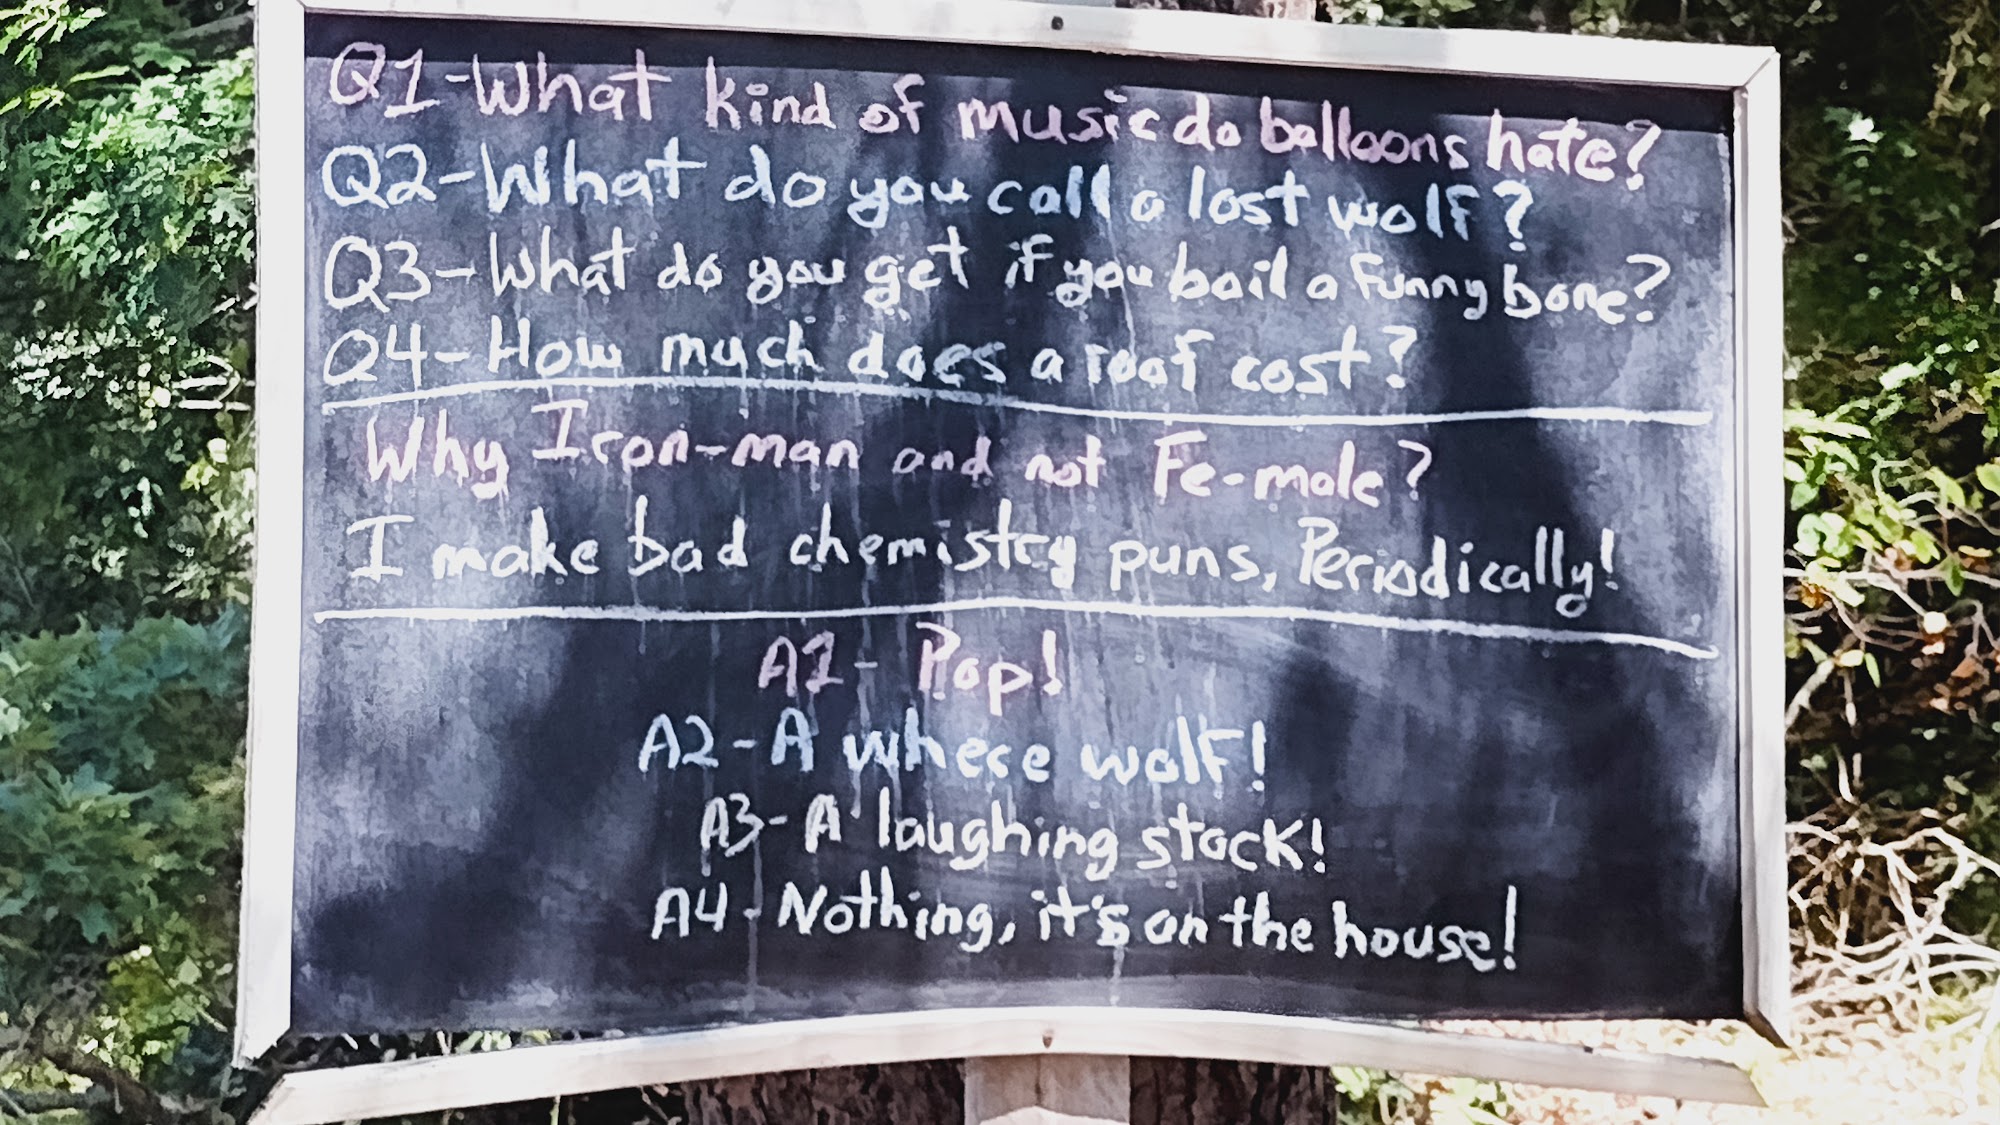 Q1-What kind of music do balloons hate?
Q2-What do you call a lost wolf?
Q3-What do you get if you boil a funny bone?
Q4-How much does a roof cost?
Why Iron-man and not Fe-male?
I make bad chemistry puns, Periodically!
A1- Pop!
A2-A where wolf!
A3-A laughing stock!
A4-Nothing, it's on the house!